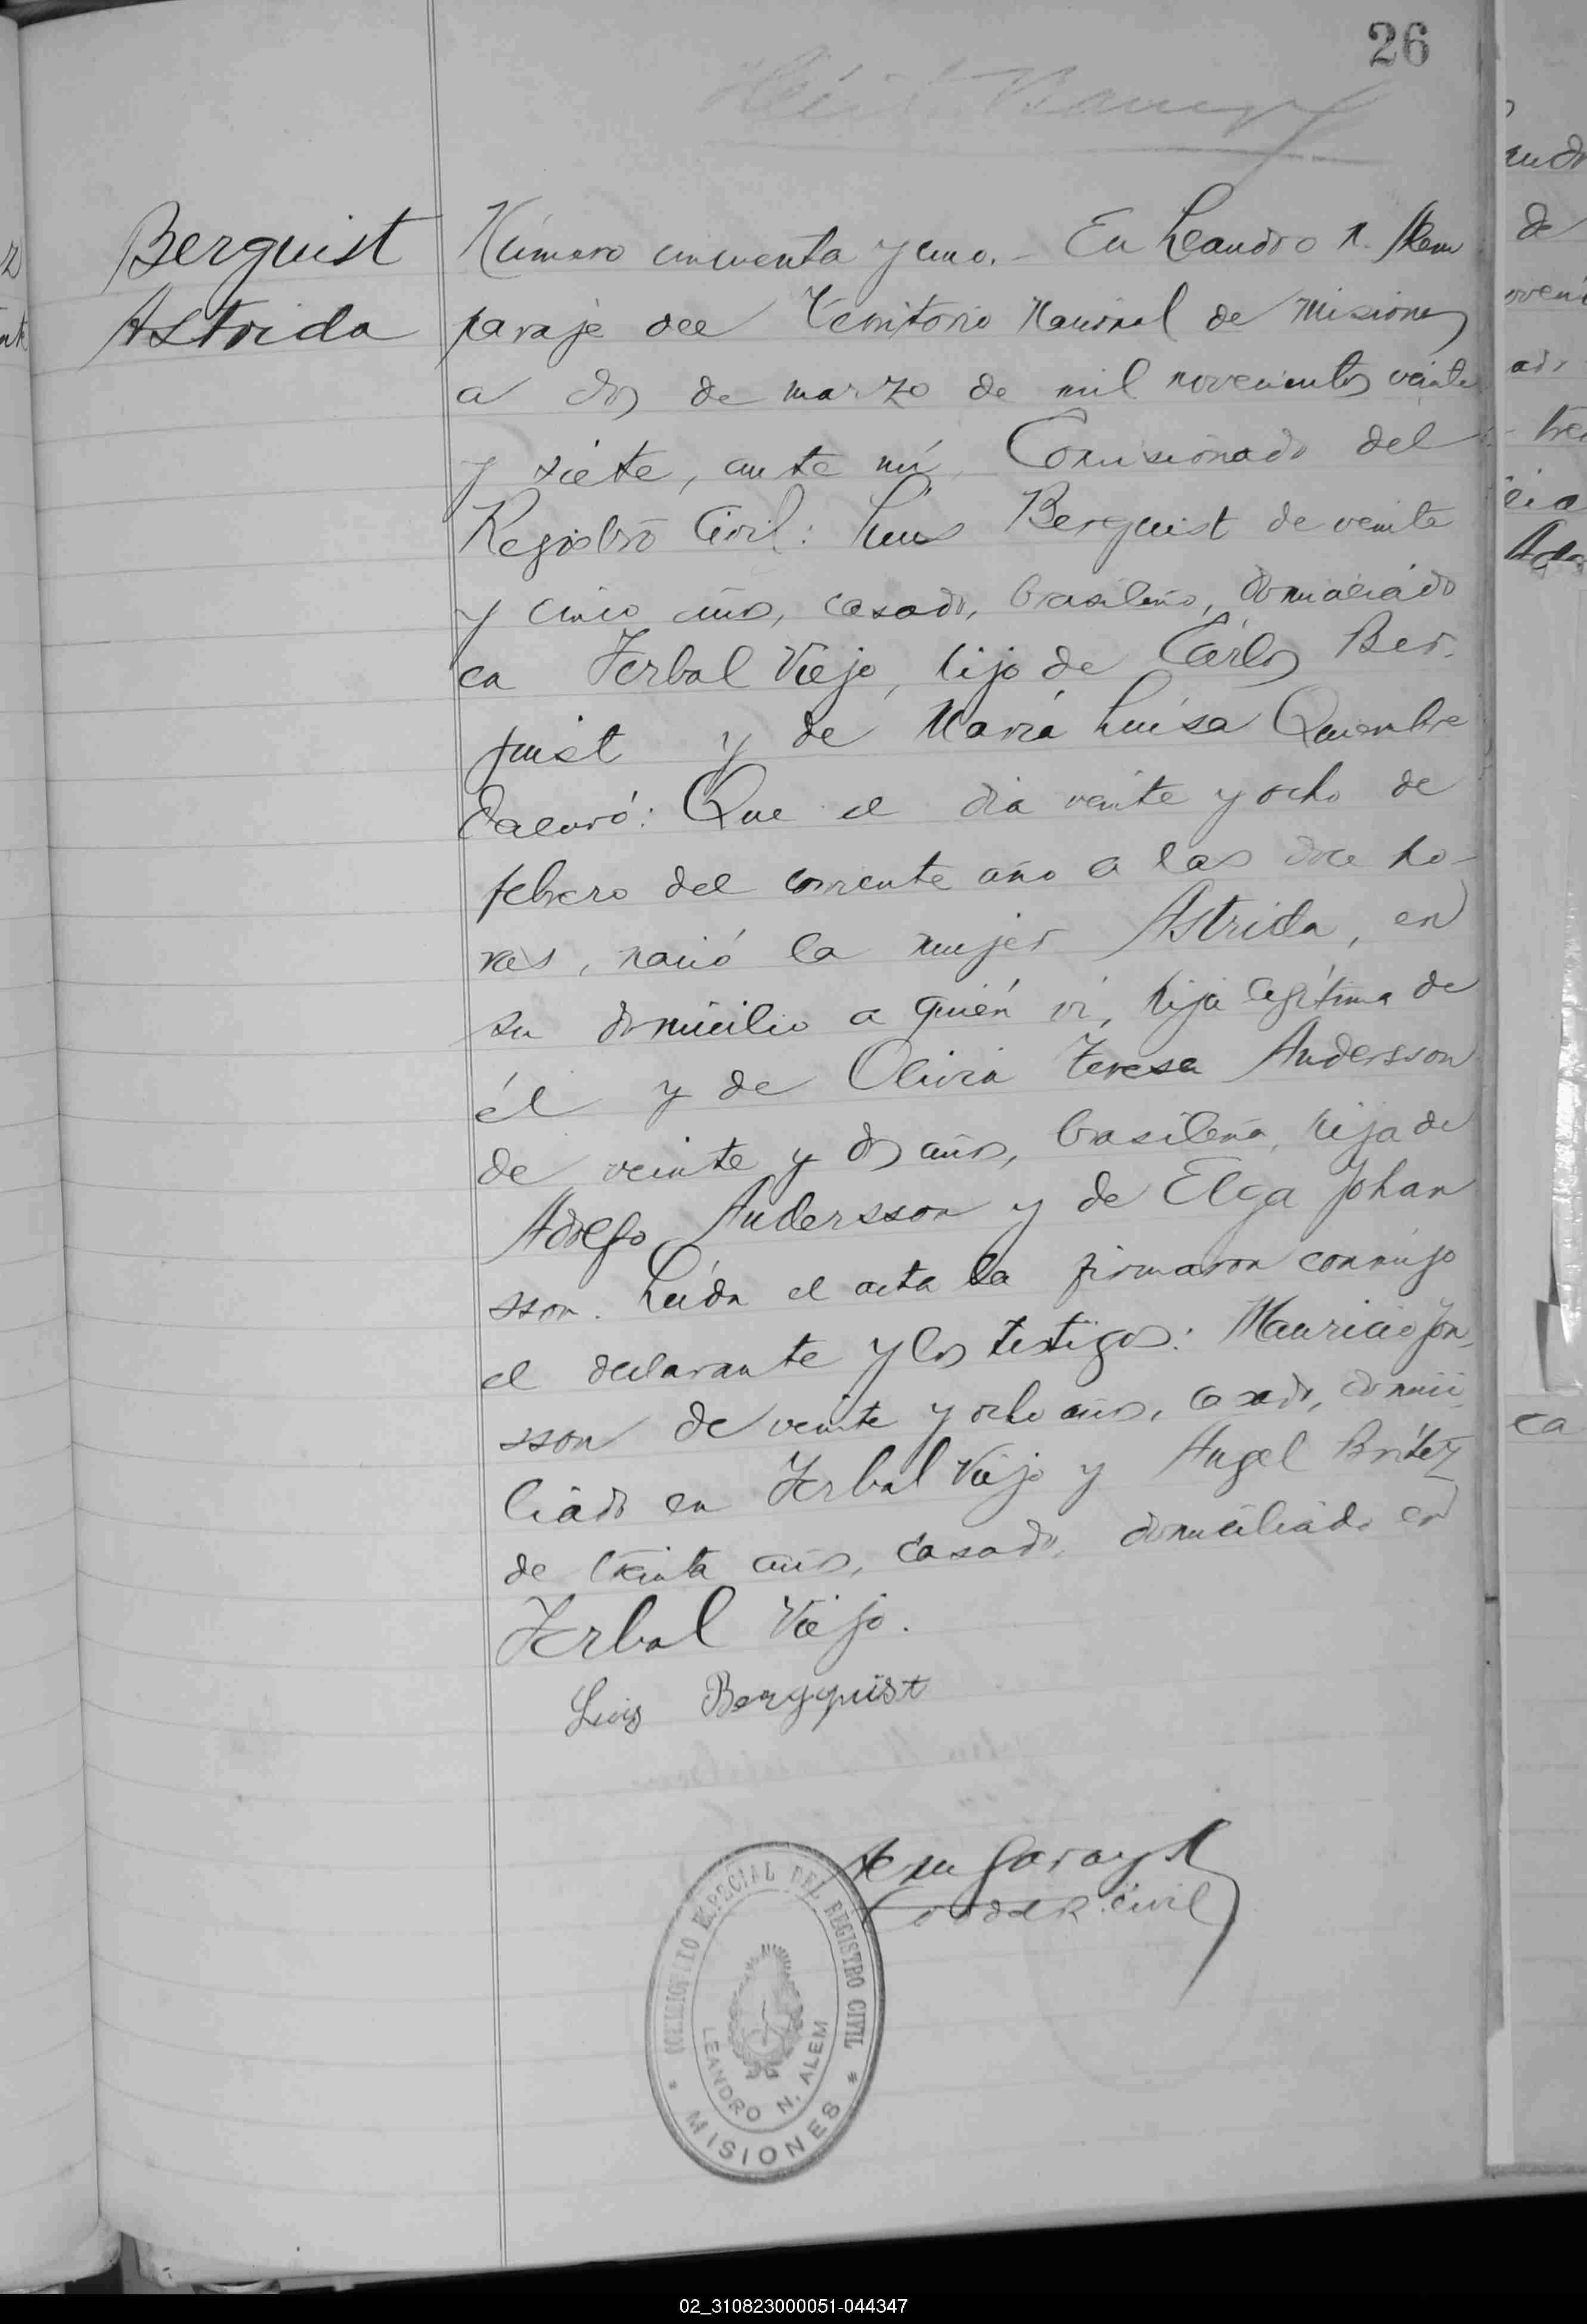 26
Berquist
Astrida
Número cincuenta y uno. - En Leandro N. Alem
paraje del Territorio Nacional de Misiones
a dos de marzo de mil novecientos veinte
y siete, ante mí, Comisionado del
Registro Civil: Luis Berquist de veinte
y cinco años, casado, brasileño, domiciliado
en Yerbal Viejo, hijo de Cárlos Ber-
quist y de María Luisa
Declaró: Que el dia veinte y ocho de
febrero del corriente año a las doce ho-
ras, nació la mujer Astrida, en
su domicilio a quién vi, hija legítima de
él y de Olivia Teresa Andersson
de veinte y dos años, brasileña, hija de
Adolfo Andersson y de Elga Johan
sson. Leida el acta la firmaron conmigo
el declarante y los testigos: Mauricio Jon-
sson de veinte y ocho años, casado, domici-
liado en Yerbal Viejo y Angel Brítez
de treinta años, casado, domiciliado en
Yerbal Viejo.
Luis Bergquist
Civil
COMISIONADO ESPECIAL DEL REGISTRO CIVIL
LEANDRO N. ALEM
* MISIONES *
02_310823000051-044347